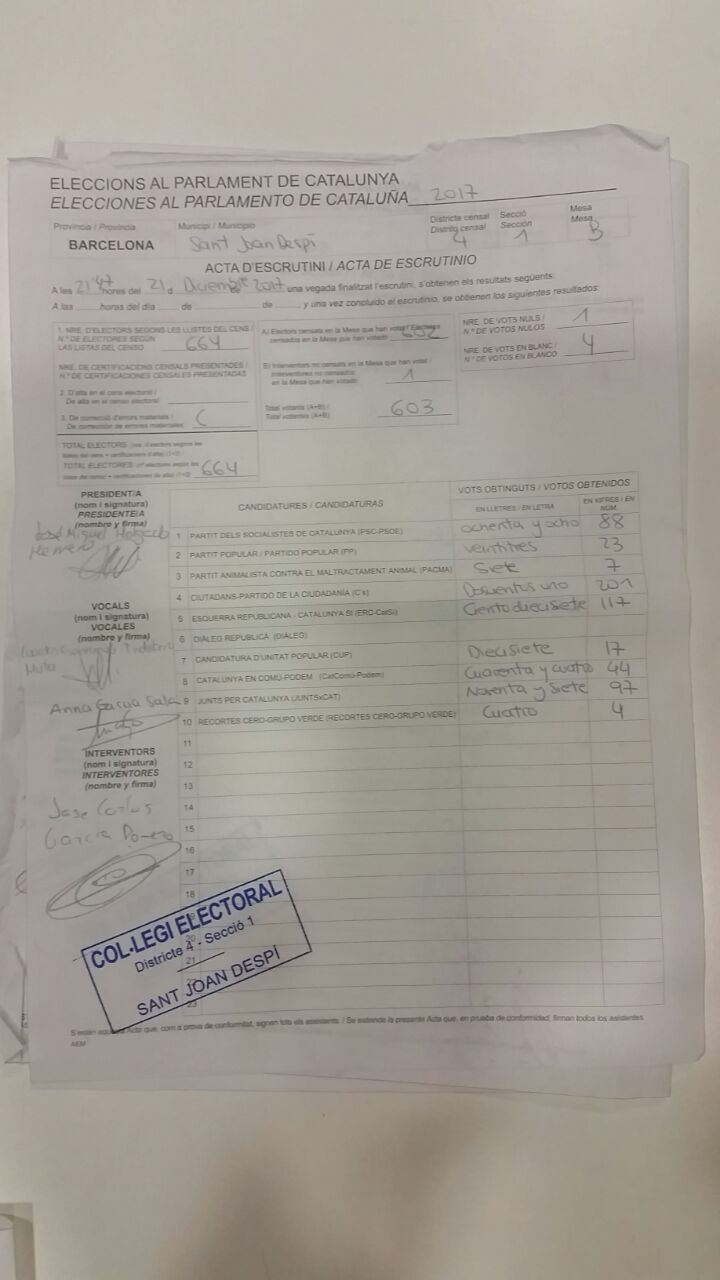 ELECCIONS AL PARLAMENT DE CATALUNYA
ELECCIONES AL PARLAMENTO DE CATALUÑA 2017
Provincia / Provincia Municipi / Municipio Districte censal Secció Mesa
Distrito censal Sección Mesa
BARCELONA Sant Joan Despí 4 1 B
ACTA D'ESCRUTINI / ACTA DE ESCRUTINIO
A les hores del 21 d 2017 una vegada finalitzat l'escrutini, s'obtenen els resultats següents:
A las horas del día de de y una vez concluido el escrutinio, se obtienen los siguientes resultados:
1. NRE. D'ELECTORS SEGONS LES LLISTES DEL CENS /
N.º DE ELECTORES SEGÚN
LAS LISTAS DEL CENSO 664
NRE. DE CERTIFICACIONS CENSALS PRESENTADES /
N.º DE CERTIFICACIONES CENSALES PRESENTADAS
2. D'alta en el cens electoral /
De alta en el censo electoral
3. De correcció d'errors materials /
De corrección de errores materiales
TOTAL ELECTORS
TOTAL ELECTORES 664
A) Electors censats en la Mesa que han votat /
censados en la Mesa que han votado 602
B) Interventors no censats en la Mesa que han votat /
Interventores no censados
en la Mesa que han votado 1
Total votants (A+B) /
Total votantes (A+B) 603
NRE. DE VOTS NULS /
N.º DE VOTOS NULOS 1
NRE. DE VOTS EN BLANC /
N.º DE VOTOS EN BLANCO 4
PRESIDENT/A
(nom i signatura)
PRESIDENTE/A
(nombre y firma)
José Miguel
Herrero
VOCALS
(nom i signatura)
VOCALES
(nombre y firma)
Anna Sala
INTERVENTORS
(nom i signatura)
INTERVENTORES
(nombre y firma)
Jose Carlos
García Romero
CANDIDATURES / CANDIDATURAS VOTS OBTINGUTS / VOTOS OBTENIDOS
EN LLETRES / EN LETRA EN XIFRES / EN NÚM.
1 PARTIT DELS SOCIALISTES DE CATALUNYA (PSC-PSOE) ochenta y ocho 88
2 PARTIT POPULAR / PARTIDO POPULAR (PP) veintitres 23
3 PARTIT ANIMALISTA CONTRA EL MALTRACTAMENT ANIMAL (PACMA) Siete 7
4 CIUTADANS-PARTIDO DE LA CIUDADANÍA (C's) Doscientos uno 201
5 ESQUERRA REPUBLICANA - CATALUNYA SÍ (ERC-CatSí) Ciento diecisiete 117
6 DIÀLEG REPUBLICÀ (DIÀLEG)
7 CANDIDATURA D'UNITAT POPULAR (CUP) Diecisiete 17
8 CATALUNYA EN COMÚ-PODEM (CatComú-Podem) Cuarenta y cuatro 44
9 JUNTS PER CATALUNYA (JUNTSxCAT) Noventa y siete 97
10 RECORTES CERO-GRUPO VERDE (RECORTES CERO-GRUPO VERDE) Cuatro 4
11
12
13
14
15
16
17
18
20
21
23
COL·LEGI ELECTORAL
Districte 4 - Secció 1
SANT JOAN DESPÍ
Acta que, com a prova de conformitat, signen tots els assistents. / Se extiende la presente Acta que, en prueba de conformidad, firman todos los asistentes.
AEM